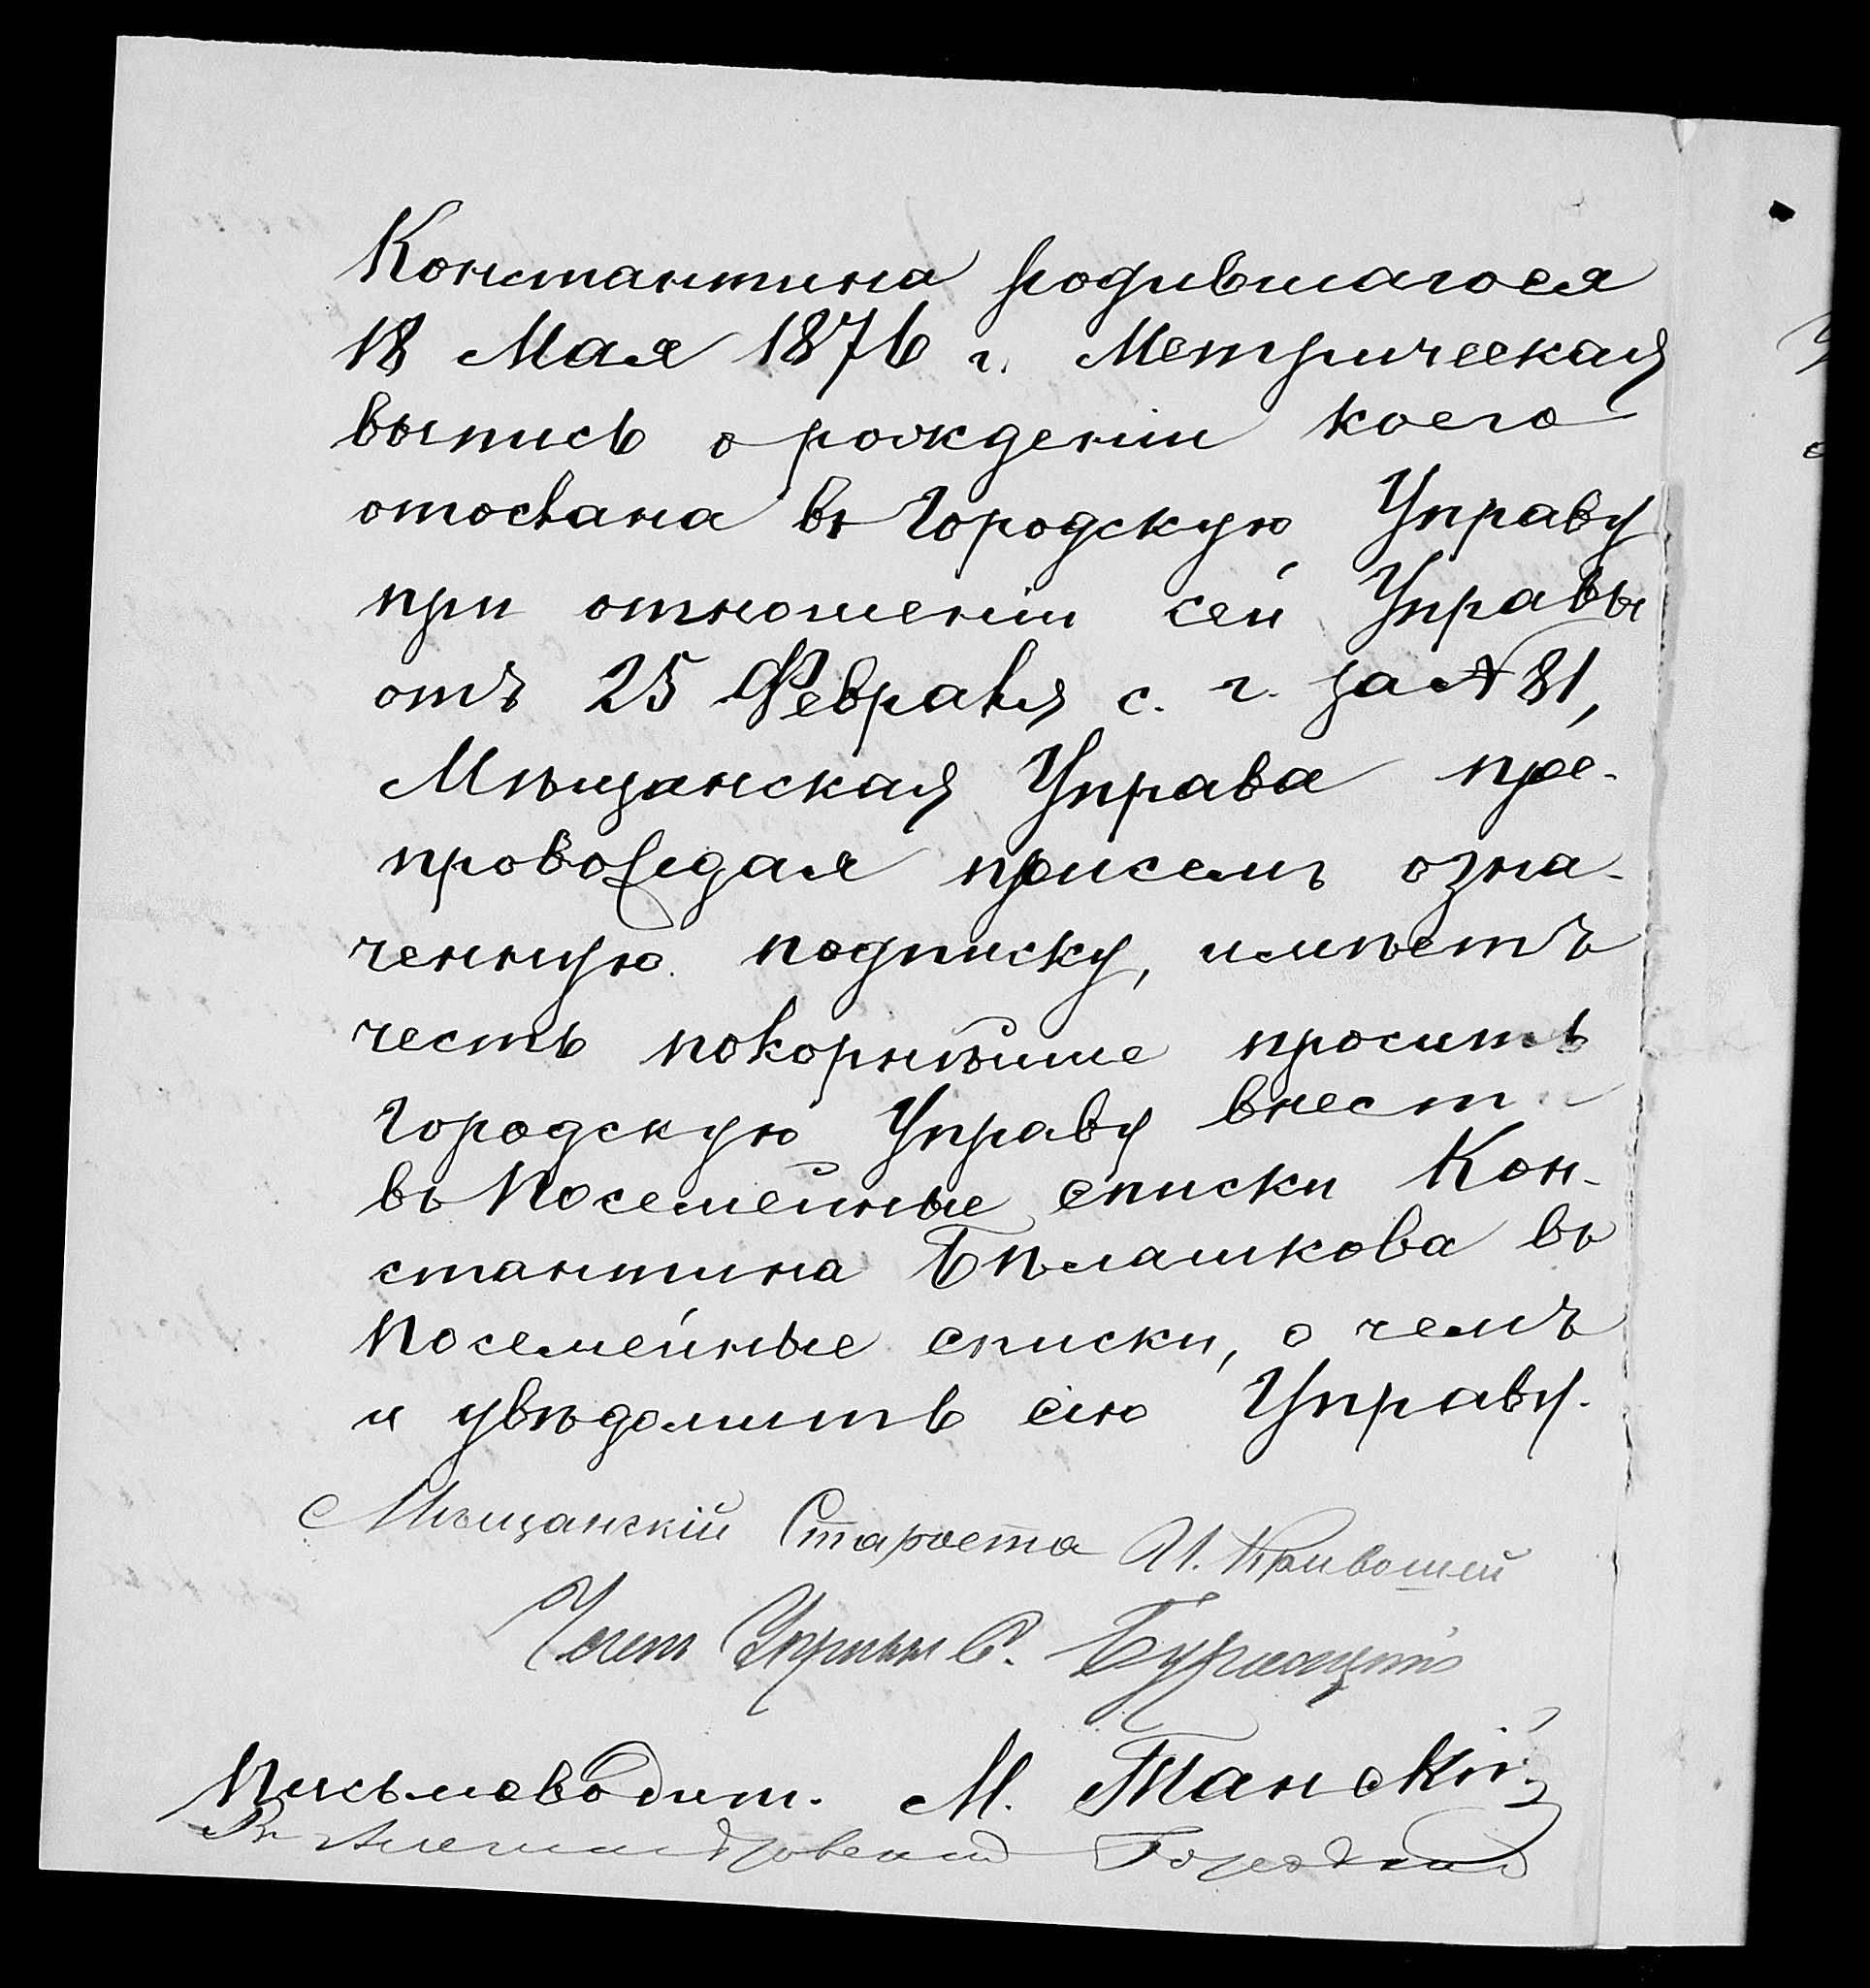 Константина родившагося
18 Мая 1876 г. Метрическая
выпись о рожденіи коего
отослана въ Городскую Управу
при отношеніи сей Управы
отъ 25 Февраля с. г. за № 81,
Мѣщанская Управа пре-
провождая присемъ озна-
ченную подписку, имѣетъ
честь покорнѣйше просить
Городскую Управу внести
въ Посемейные списки Кон-
стантина Бѣлашкова въ
Посемейные списки, о чемъ
и увѣдомить сію Управу.
Мѣщанскій Староста И. Кривошей
Членъ Управы С.
Письмоводит. М. Танскій